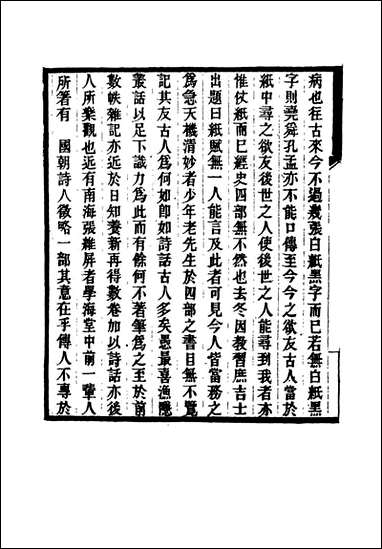 病也往古來今不過幾張白紙黑字而已若無白紙黑
字則堯舜孔孟亦不能口傳至今今之欲友古人當於
紙中尋之欲友後世之人使後世之人能尋到我者亦
惟仗紙而已經史四部無不然也去冬因教習庶吉士
出題曰紙賦無一人能言及此者可見今人皆當務之
爲急天機清妙者少年老先生於四部之書目無不覽
記其友古人爲何如卽如詩話古人多矣愚最喜漁隱
叢話以足下識力爲此而有餘何不著筆爲之至於前
數帙雜記亦近於日知養新再得數卷加以詩話亦後
人所樂觀也近有南海張維屏者學海堂中前一輩人
所著有　國朝詩人徵略一部其意在乎傳人不專於